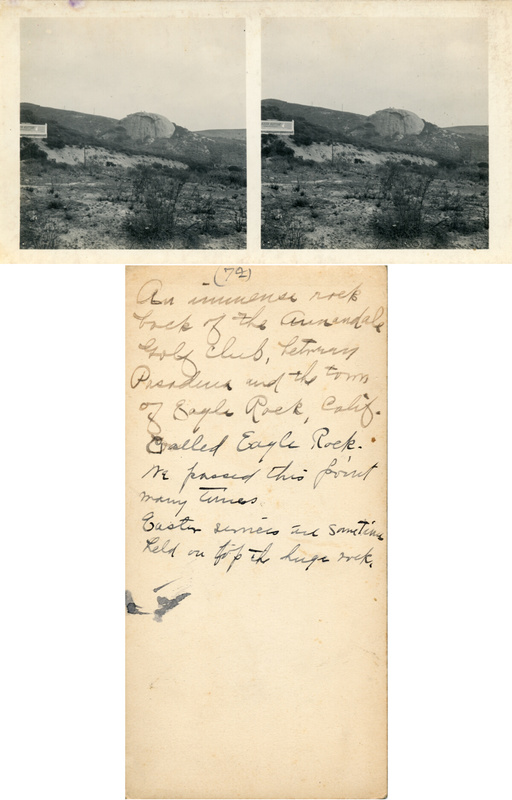 (72)
An immense rock
back of the Annandale
Golf Club, between
Pasadena and the town
of Eagle Rock, Calif.
Called Eagle Rock.
We passed this point
many times.
Easter services are sometimes
held on top the huge rock.